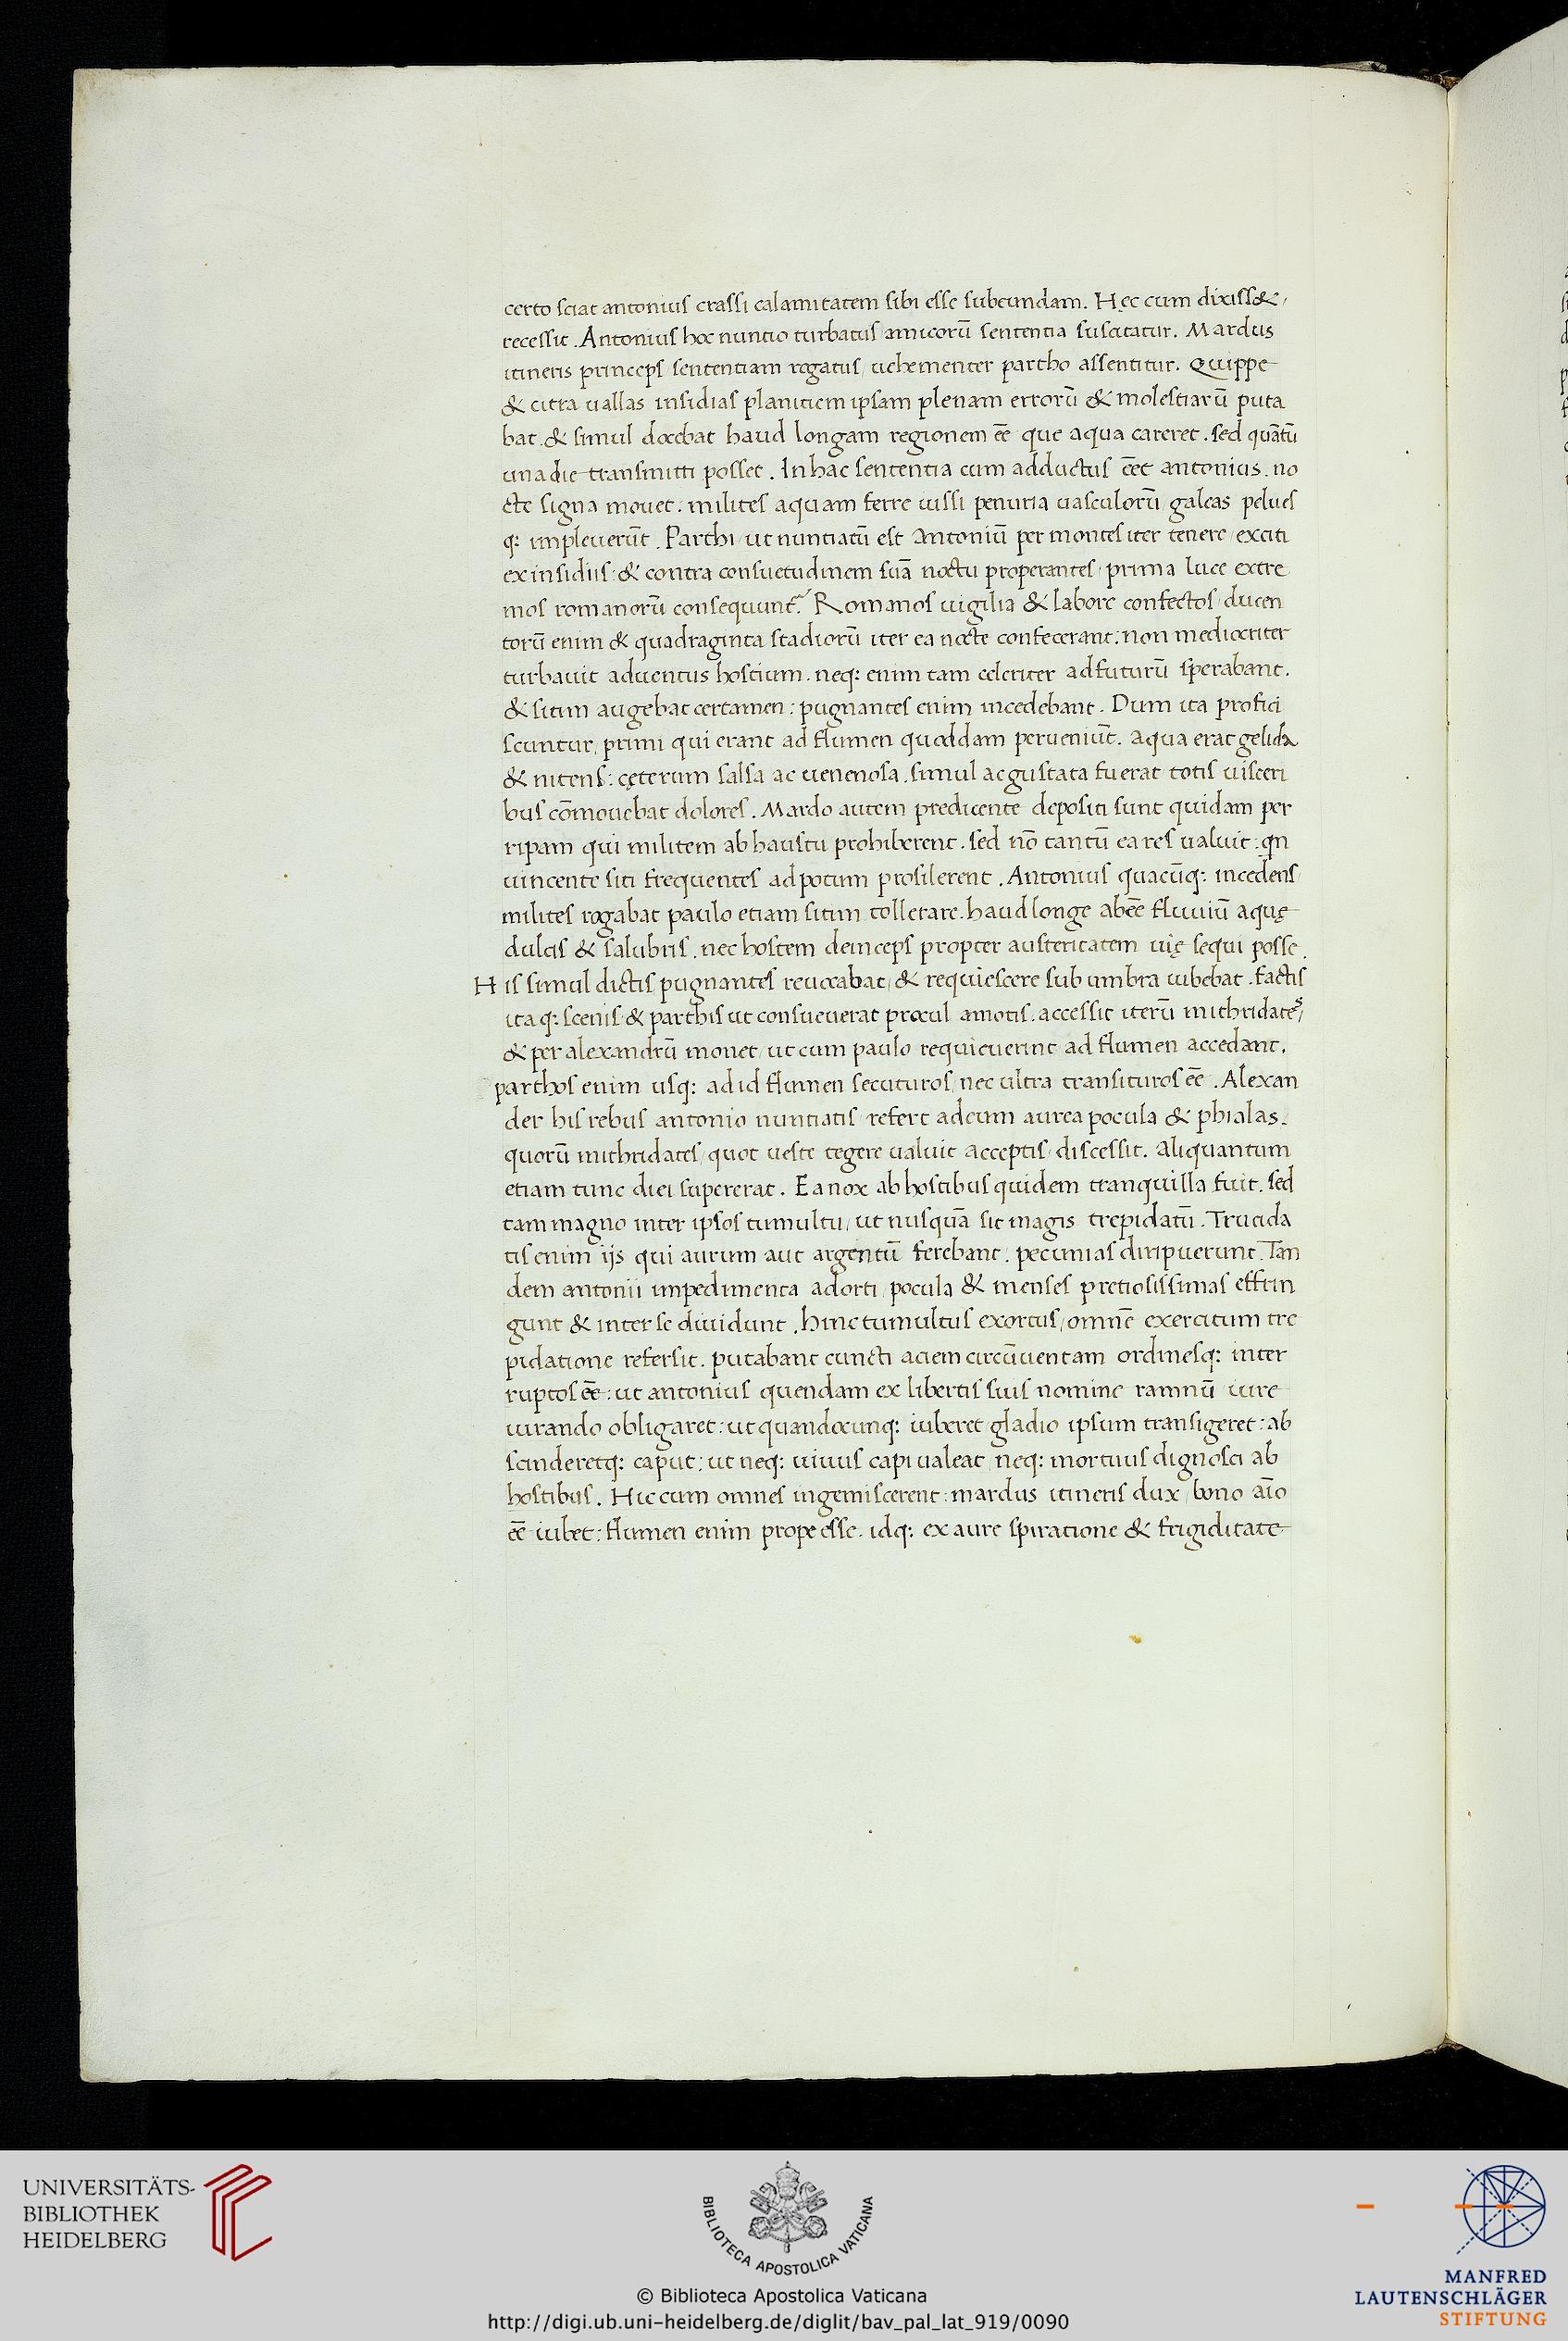 certo sciat antonius crassi calamitatem sibi esse subeundam. Hęc cum dixiss&,
recessit. Antonius hoc nuntio turbatus amicorū sententia suscitatur. Mardus
itineris princeps sententiam rogatus, uehementer partho assentitur. Quippe
& citra uallas insidias planitiem ipsam plenam errorū & molestiarū puta
bat. & simul docebat haud longam regionem eē que aqua careret. sed quātū
una die transmitti posset. In hac sententia cum adductus eēt antonius. no
cte signa mouet. milites aquam ferre iussi penuria uasculorū, galeas pelues
q: impleuerūt. Parthi, ut nuntiatū est Antoniū per montes iter tenere, exciti
ex insidiis, & contra consuetudinem suā noctu properantes, prima luce extre
mos romanorū consequunt̃. Romanos uigilia & labore confectos, ducen
torū enim & quadraginta stadiorū iter ea nocte confecerant: non mediocriter
turbauit aduentus hostium. neq: enim tam celeriter adfuturū sperabant.
& sitim augebat certamen: pugnantes enim incedebant. Dum ita profici
scuntur, primi qui erant ad flumen quoddam perueniūt. Aqua erat gelida
& nitens: cęterum salsa ac uenenosa. simul ac gustata fuerat totis uisceri
bus cōmouebat dolores. Mardo autem predicente depositi sunt quidam per
ripam qui militem ab haustu prohiberent. sed nō tantū ea res ualuit: qn
uincente siti frequentes ad potum prosilerent. Antonius quacūq: incedens
milites rogabat paulo etiam sitim tollerare. haud longe abeē fluuiū aquę
dulcis & salubris. nec hostem deinceps propter austeritatem uię sequi posse.
His simul dictis pugnantes reuocabat, & requiescere sub umbra iubebat. factis
itaq: scenis & parthis ut consueuerat procul amotis. accessit iterū mithridates,
& per alexandrū monet, ut cum paulo requieuerint ad flumen accedant.
parthos enim usq: ad id flumen secuturos, nec ultra transituros eē. Alexan
der his rebus antonio nuntiatis refert ad eum aurea pocula & phialas.
quorū mithridates, quot ueste tegere ualuit acceptis, discessit. Aliquantum
etiam tunc diei supererat. Ea nox ab hostibus quidem tranquilla fuit. sed
tam magno inter ipsos tumultu, ut nusquā sit magis trepidatū. Trucida
tis enim ijs qui aurum aut argentū ferebant, pecunias diripuerunt. Tan
dem antonii impedimenta adorti, pocula & menses pretiosissimas effrin
gunt & inter se diuidunt. hinc tumultus exortus, omnē exercitum tre
pidatione refersit. putabant cuncti aciem circūuentam ordinesq: inter
ruptos eē: ut antonius quendam ex libertis suis nomine ramnū iure
iurando obligaret: ut quandocunq: iuberet gladio ipsum transigeret: ab
scinderetq: caput: ut neq: uiuus capi ualeat, neq: mortuus dignosci ab
hostibus. Hic cum omnes ingemiscerent: mardus itineris dux, bono aīo
eē iubet: flumen enim prope esse. idq: ex aure spiratione & frigiditate
UNIVERSITÄTS-
BIBLIOTHEK
HEIDELBERG
BIBLIOTECA APOSTOLICA VATICANA
© Biblioteca Apostolica Vaticana
http://digi.ub.uni-heidelberg.de/diglit/bav_pal_lat_919/0090
MANFRED
LAUTENSCHLÄGER
STIFTUNG